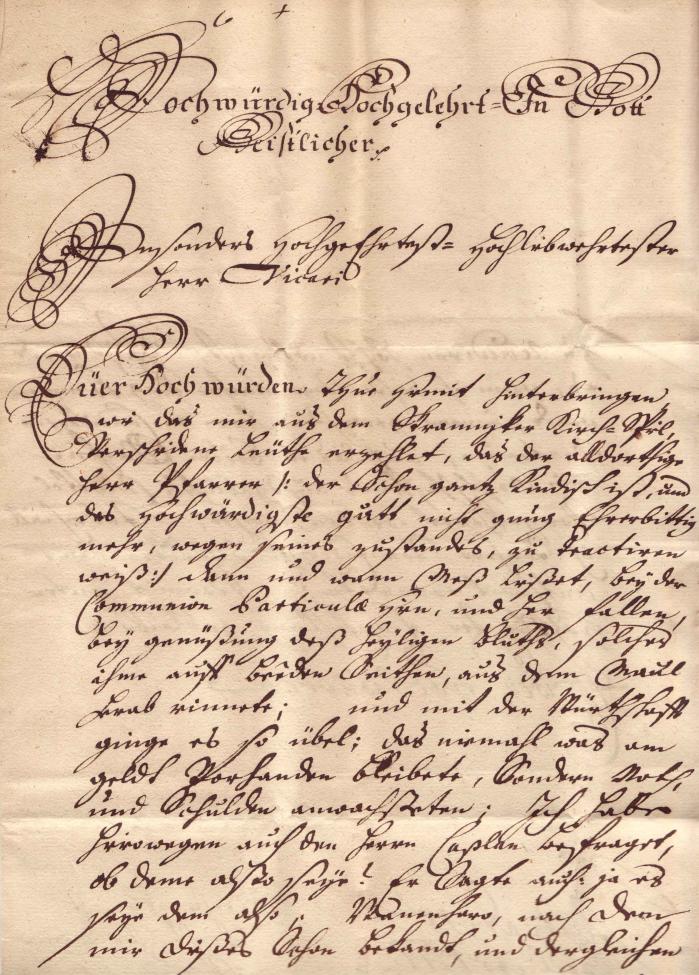 Hochwürdig Hochgelehrt= In Gott
Geistlicher
Besonders Hochgeehrtest= Hochliebwehrtester
Herr Vicari
Eüer Hochwürden Thue hirmit hinterbringen
wie das mir aus dem Skramniker Kirch=Spil,
Verschidene Leüthe erzehlet, das der alldorthige
Herr Pfarrer /: der Schon gantz Kindisch ist, und
das Hochwürdigste gutt nicht gnug Ehrerbittig
mehr, wegen seines zustandes, zu tractiren
weiß :/ dann und wann Meß Liset, bey der
Communion Particulæ hin, und her fallen,
bey genüßung deß heyligen Bluths, solches
ihme auff beeden Seithen, aus dem Maul
herab rinnete; und mit der Würthschafft
ginge es so übel; das niemahl was am
geldt Vorhanden bleibete, Sondern Noth,
und Schulden anwachseten; Ich habe
hirowegen auch den Herrn Caplan befraget,
ob deme also seye? Er Sagte auch: ja es
seye dem also, nach dem
mir dises Schon bekandt, und dergleichen